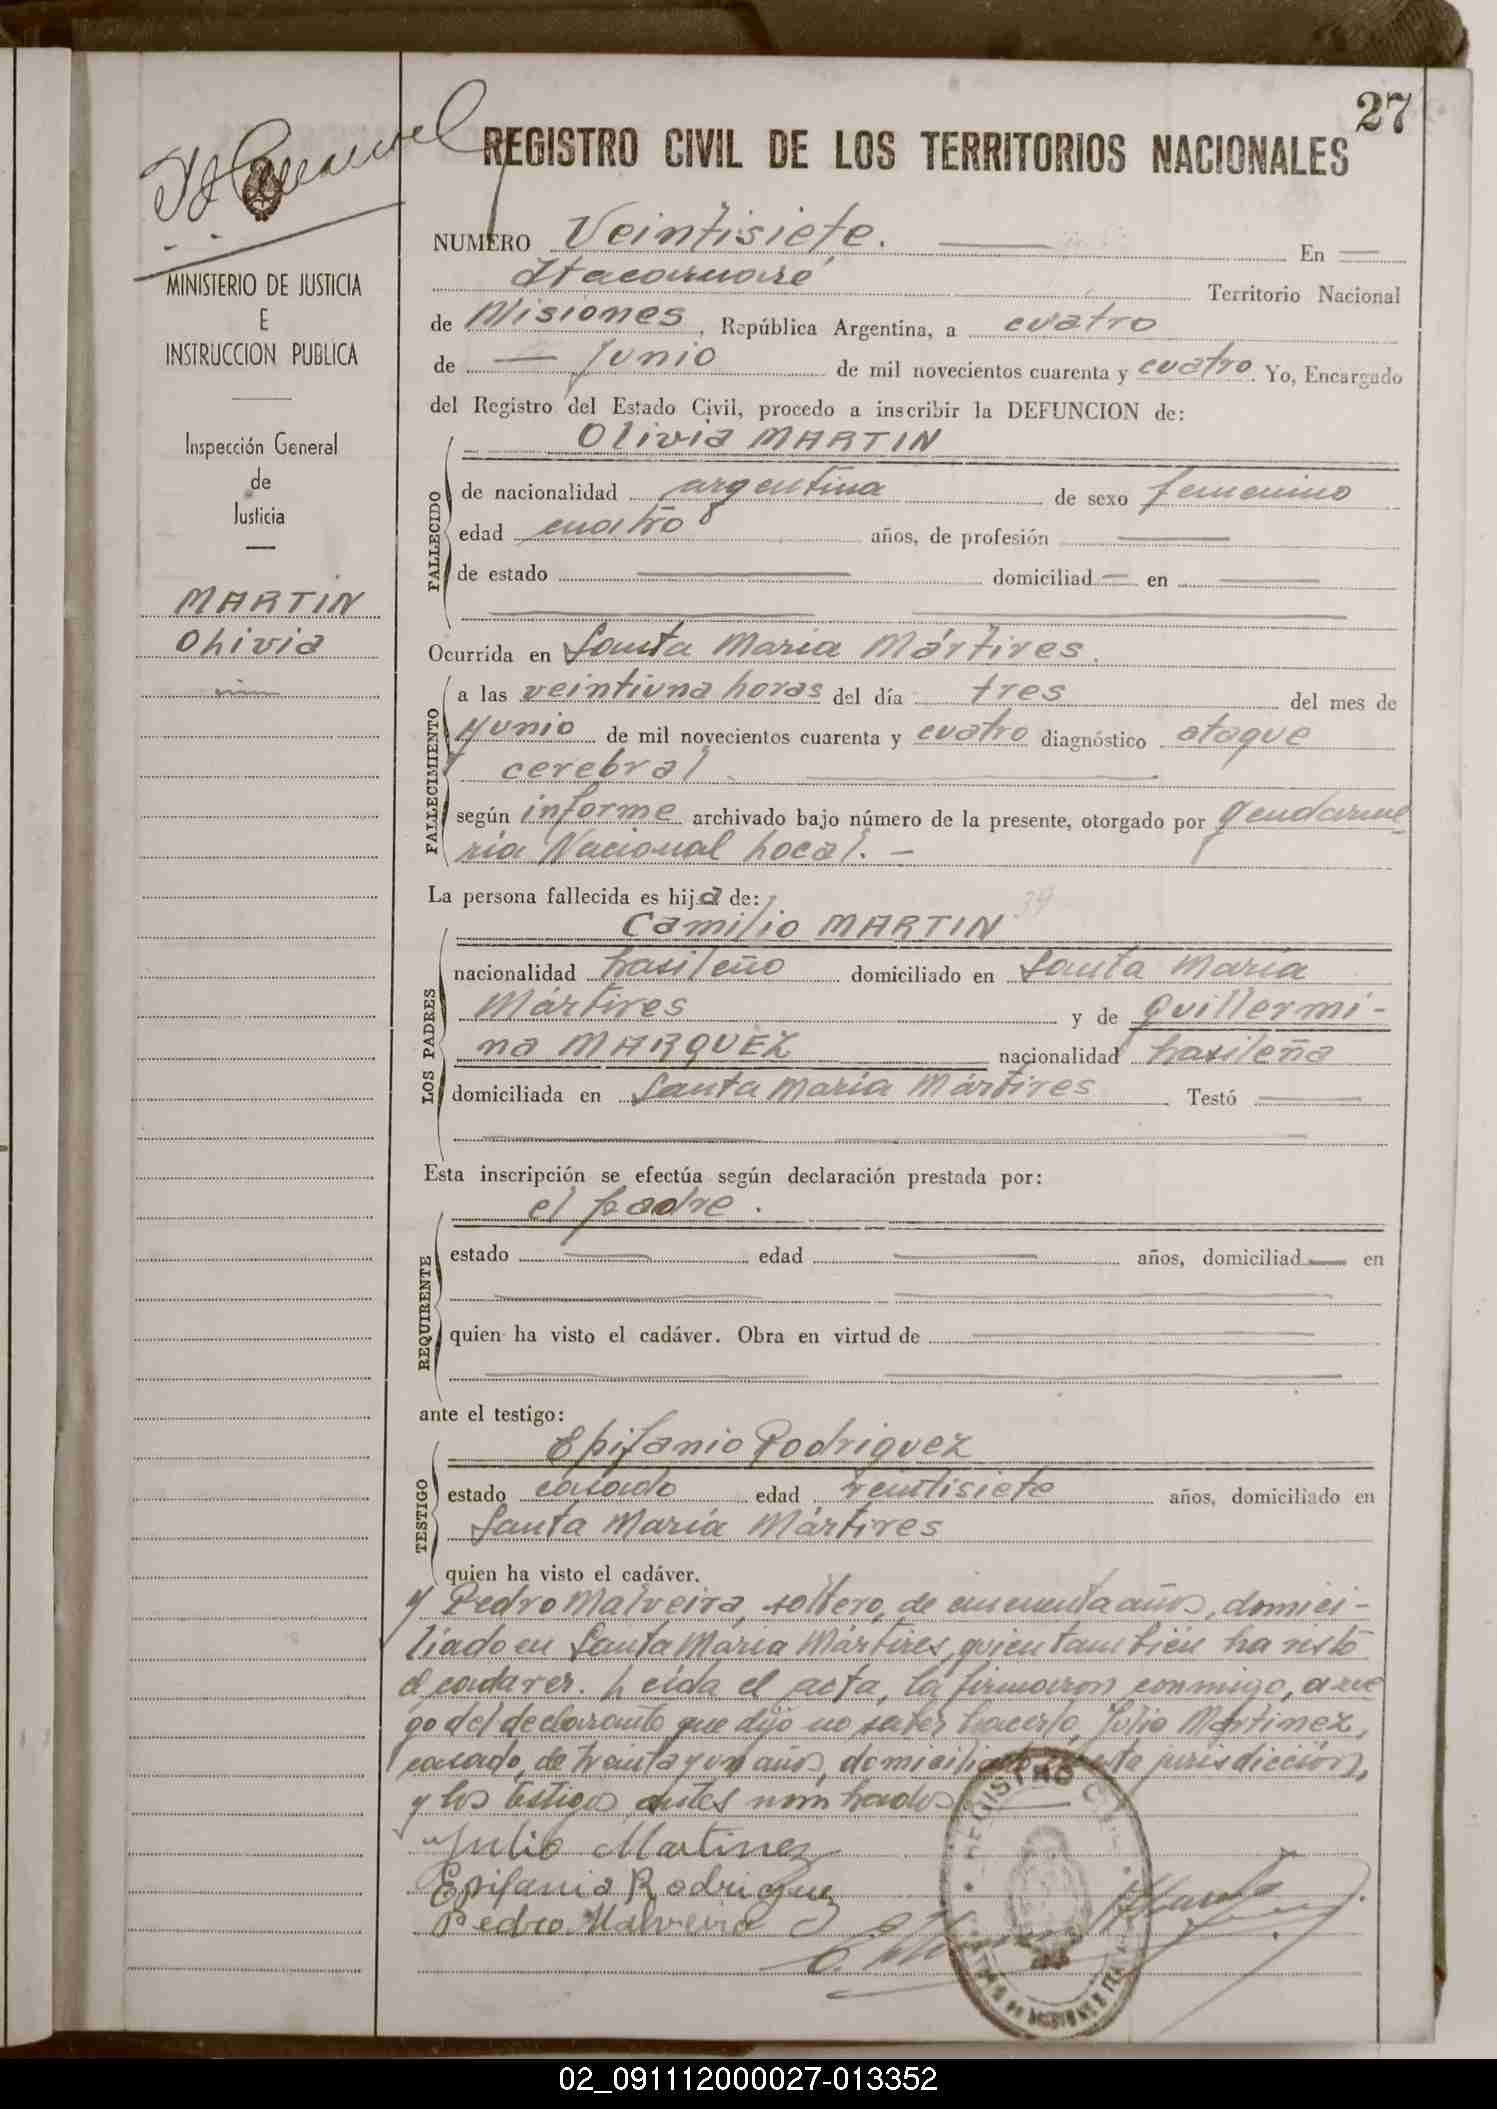 27
REGISTRO CIVIL DE LOS TERRITORIOS NACIONALES
MINISTERIO DE JUSTICIA
E
INSTRUCCION PUBLICA
Inspección General
de
Justicia
MARTIN
Olivia
NUMERO Veintisiete. En
Itacaruaré Territorio Nacional
de Misiones, República Argentina, a cuatro
de Junio de mil novecientos cuarenta y cuatro. Yo, Encargado
del Registro del Estado Civil, procedo a inscribir la DEFUNCION de:
Olivia MARTIN
FALLECIDO
de nacionalidad argentina de sexo femenino
edad cuatro años, de profesión
de estado domiciliad en
Ocurrida en Santa Maria Mártires.
FALLECIMIENTO
a las veintiuna horas del día tres del mes de
junio de mil novecientos cuarenta y cuatro diagnóstico ataque
cerebral
según informe archivado bajo número de la presente, otorgado por Gendarme-
ria Nacional Local. -
La persona fallecida es hija de:
Camilio MARTIN 39
LOS PADRES
nacionalidad brasileño domiciliado en Santa María
Mártires y de Guillermi-
na MARQUEZ nacionalidad brasileña
domiciliada en Santa María Mártires Testó
Esta inscripción se efectúa según declaración prestada por:
el padre.
REQUIRENTE
estado edad años, domiciliad en
quien ha visto el cadáver. Obra en virtud de
ante el testigo:
Epifanio Rodriguez
TESTIGO
estado casado edad veintisiete años, domiciliado en
Santa María Mártires
quien ha visto el cadáver.
y Pedro Malveira, soltero, de cincuenta años, domici-
liado en Santa María Mártires, quien también ha visto
el cadaver. Leida el acta, la firmaron conmigo, a rue-
go del declarante que dijo no saber hacerlo, Julio Martinez,
casado, de treinta y un años, domiciliado en esta jurisdicción,
y los testigos antes nombrados
Julio Martinez
Epifanio Rodriguez
Pedro Malveira
REGISTRO
02_091112000027-013352